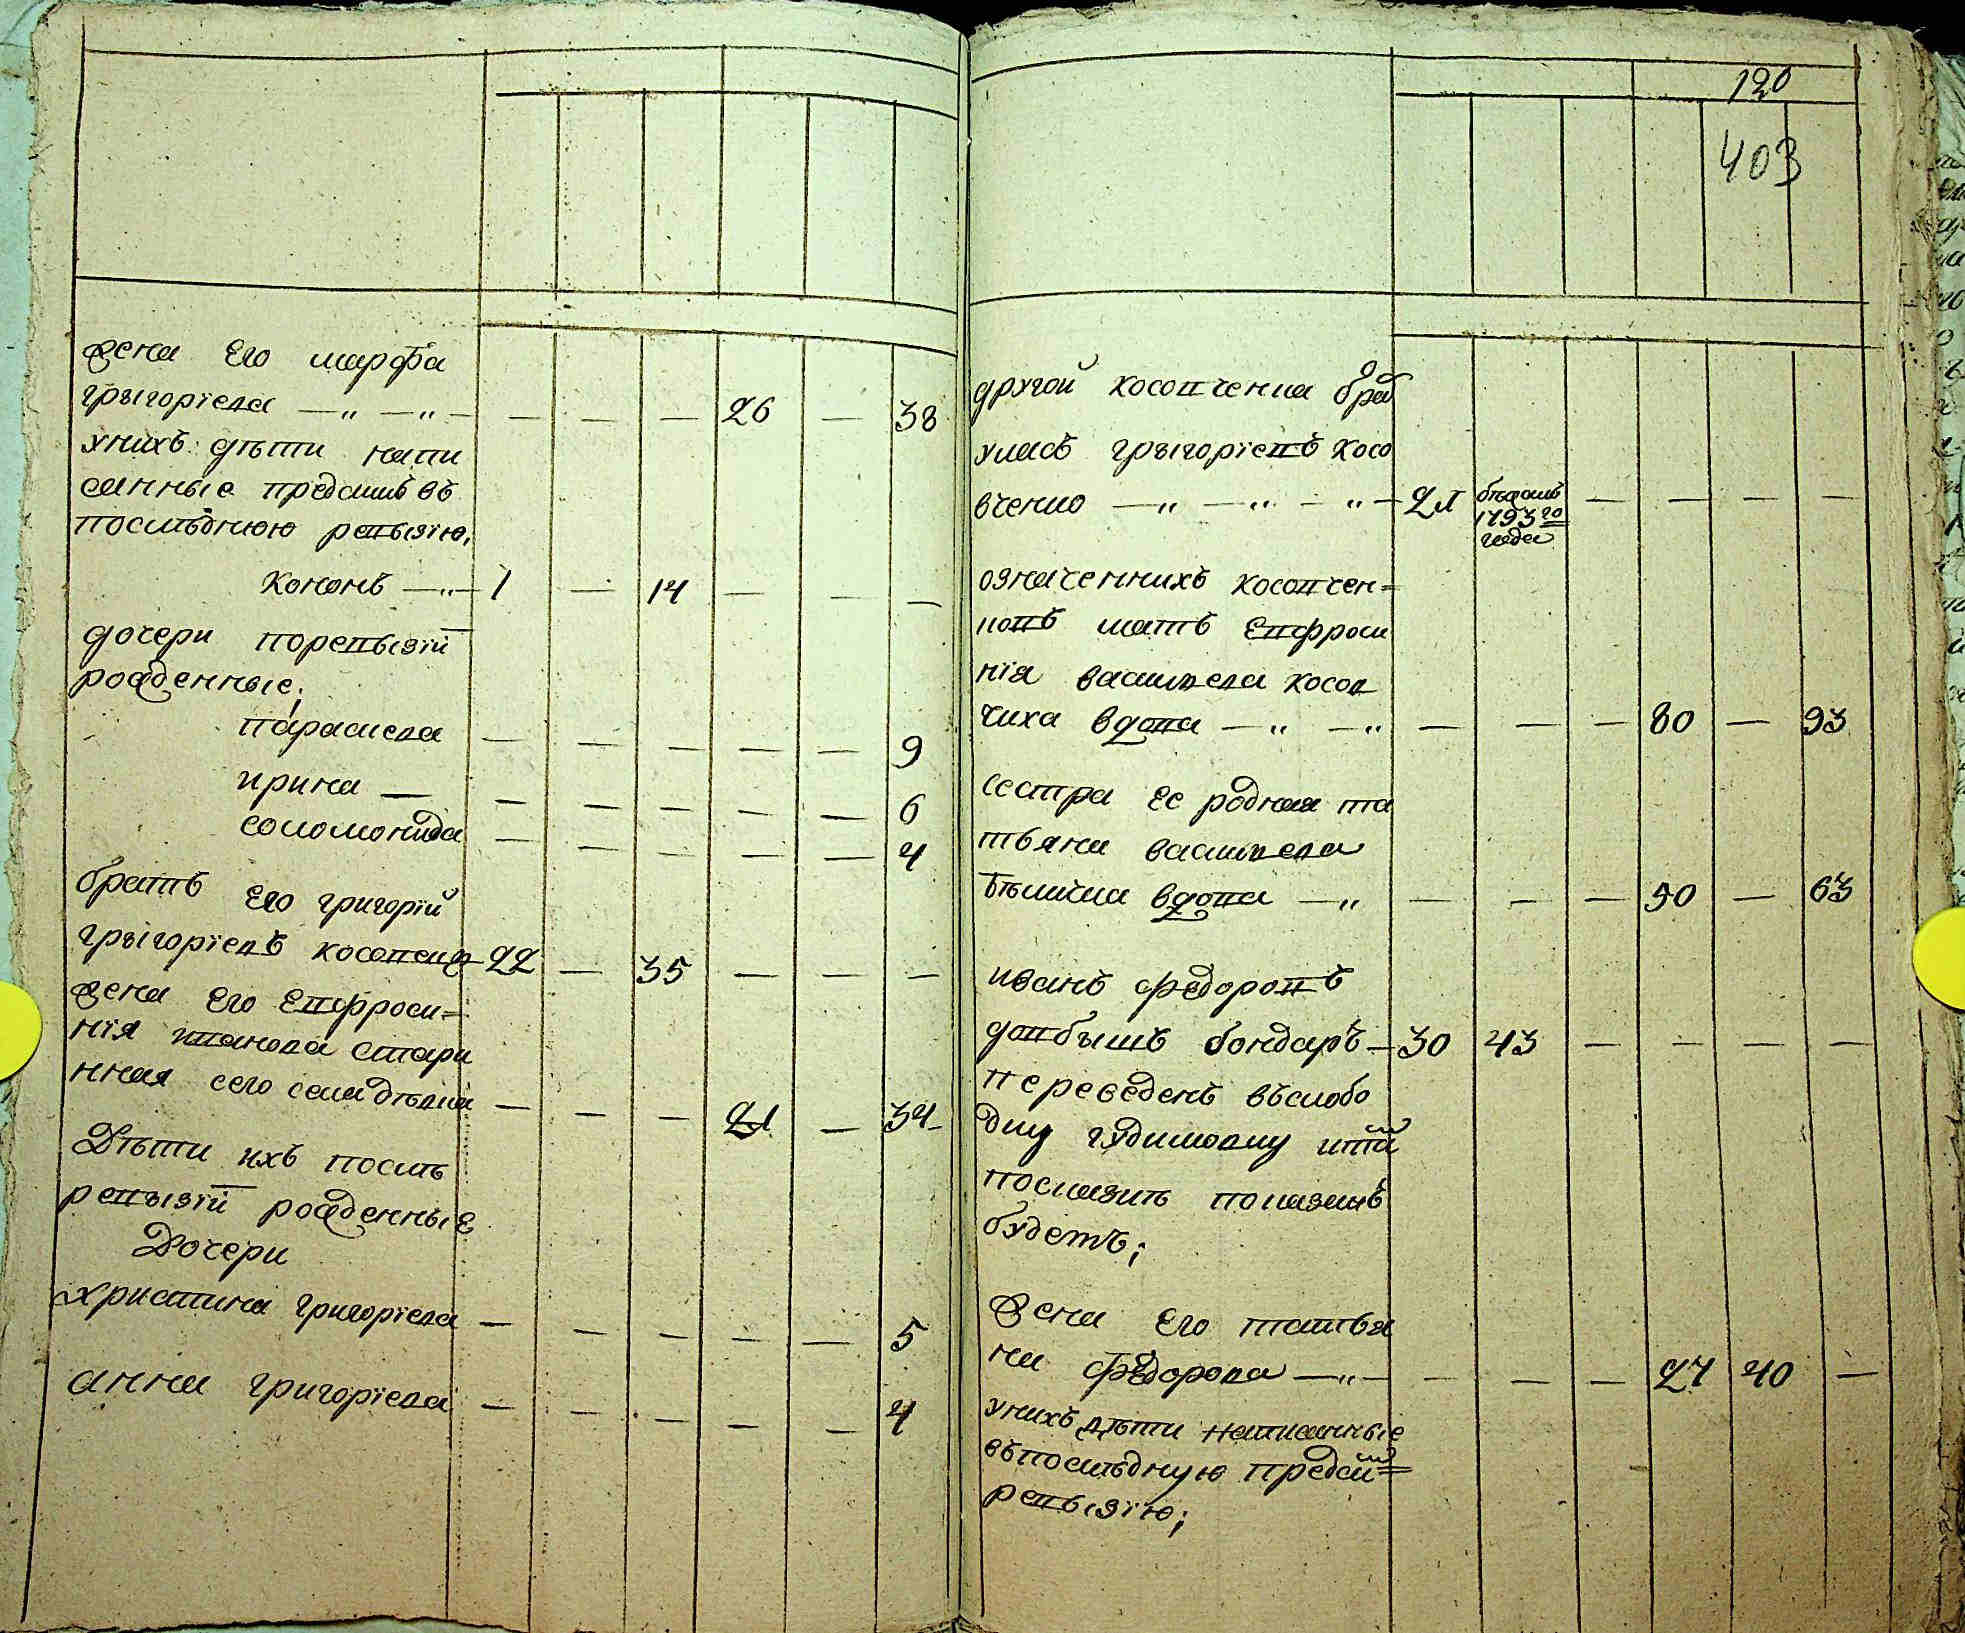 жена Его марфа
григорїева — „ — „ — — — — 26 — 38
унихъ дѣти напи
санные предшивъ въ
послѣднюю ревызїю,
кононъ — „ — 1 — 14 — — —
дочери поревызїй
рожденные;
параскева — — — — — 9
ирина — — — — — — 6
соломонида — — — — — 4
братъ Его григорїй
грыгорїевъ косовенко 22 — 35 — — —
жена Его Евфроси=
нїя иванова стари
нная сего села дѣвка — — — 21 — 34
Дѣти ихъ послѣ
ревызїй рожденные
Дочери
христина григорїева — — — — — 5
анна григорїева — — — — — 4
120
403
другой косовченка бра
уласъ грыгорїевъ косо
вченко — „ — „ — „ — 21 бѣжалъ 1793го года — — — —
означеннихъ косовчен=
ковъ мать Евфроси
нїя василева косов
чиха вдова — „ — „ — — — 80 — 93
сестра ее родная та
тьяна василева
вдова — „ — — — 50 — 63
иванъ федоровъ
довбышъ бондарь — 30 43 — — — —
переведенъ въслобо
дку гудимовку
показанъ
будетъ;
жена Его татья
на федорова — „ — — — — 27 40 —
унихъ дѣти написанные
въпослѣдную предсим=
ревызїю;